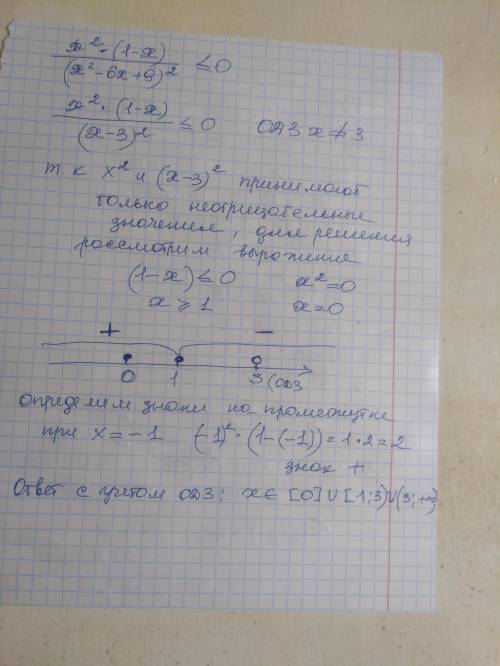 x²·(1-x)/(x²-6x+9)² ≤0
x²·(1-x)/(x-3)² ≤0 ОДЗ x≠3
т.к x² и (x-3)² принимают
только неотрицательные
значения, для решения
рассмотрим выражение
(1-x)≤0 x²=0
x⩾1 x=0
+ −
0 1 3(ОДЗ
определим знаки на промежутке
при x=-1 (-1)²·(1-(-1))=1·2=2
знак +
Ответ с учетом ОДЗ: x∈[0]∪[1;3)∪(3;+∞)